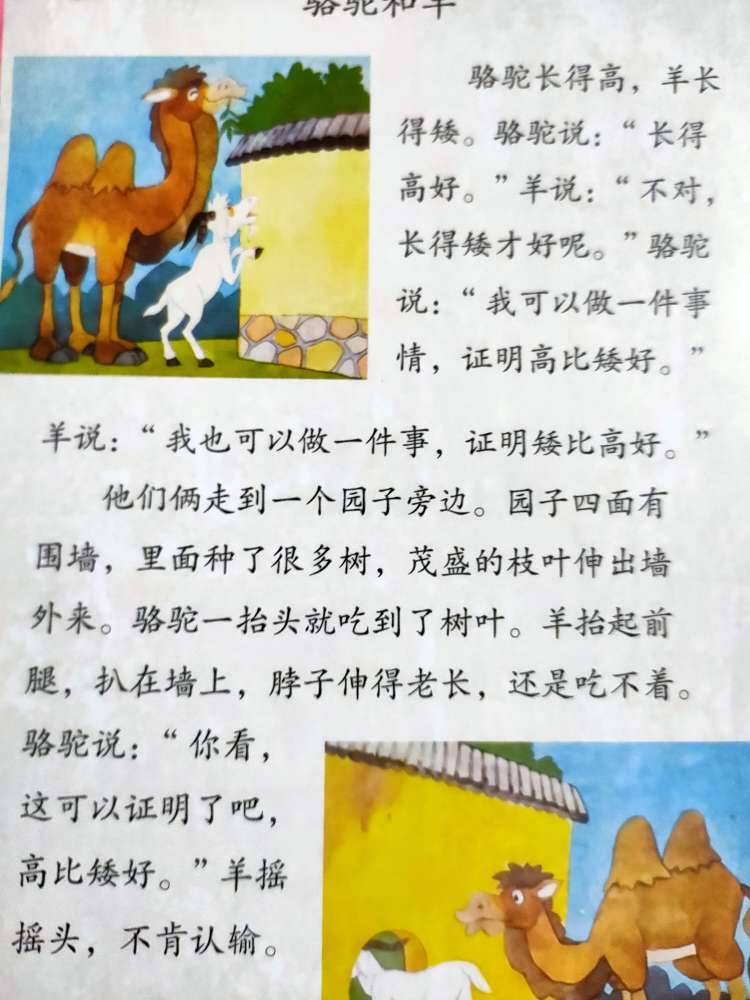 骆驼和羊
骆驼长得高，羊长
得矮。骆驼说：“长得
高好。”羊说：“不对，
长得矮才好呢。”骆驼
说：“我可以做一件事
情，证明高比矮好。”
羊说：“我也可以做一件事，证明矮比高好。”
他们俩走到一个园子旁边。园子四面有
围墙，里面种了很多树，茂盛的枝叶伸出墙
外来。骆驼一抬头就吃到了树叶。羊抬起前
腿，扒在墙上，脖子伸得老长，还是吃不着。
骆驼说：“你看，
这可以证明了吧，
高比矮好。”羊摇
摇头，不肯认输。